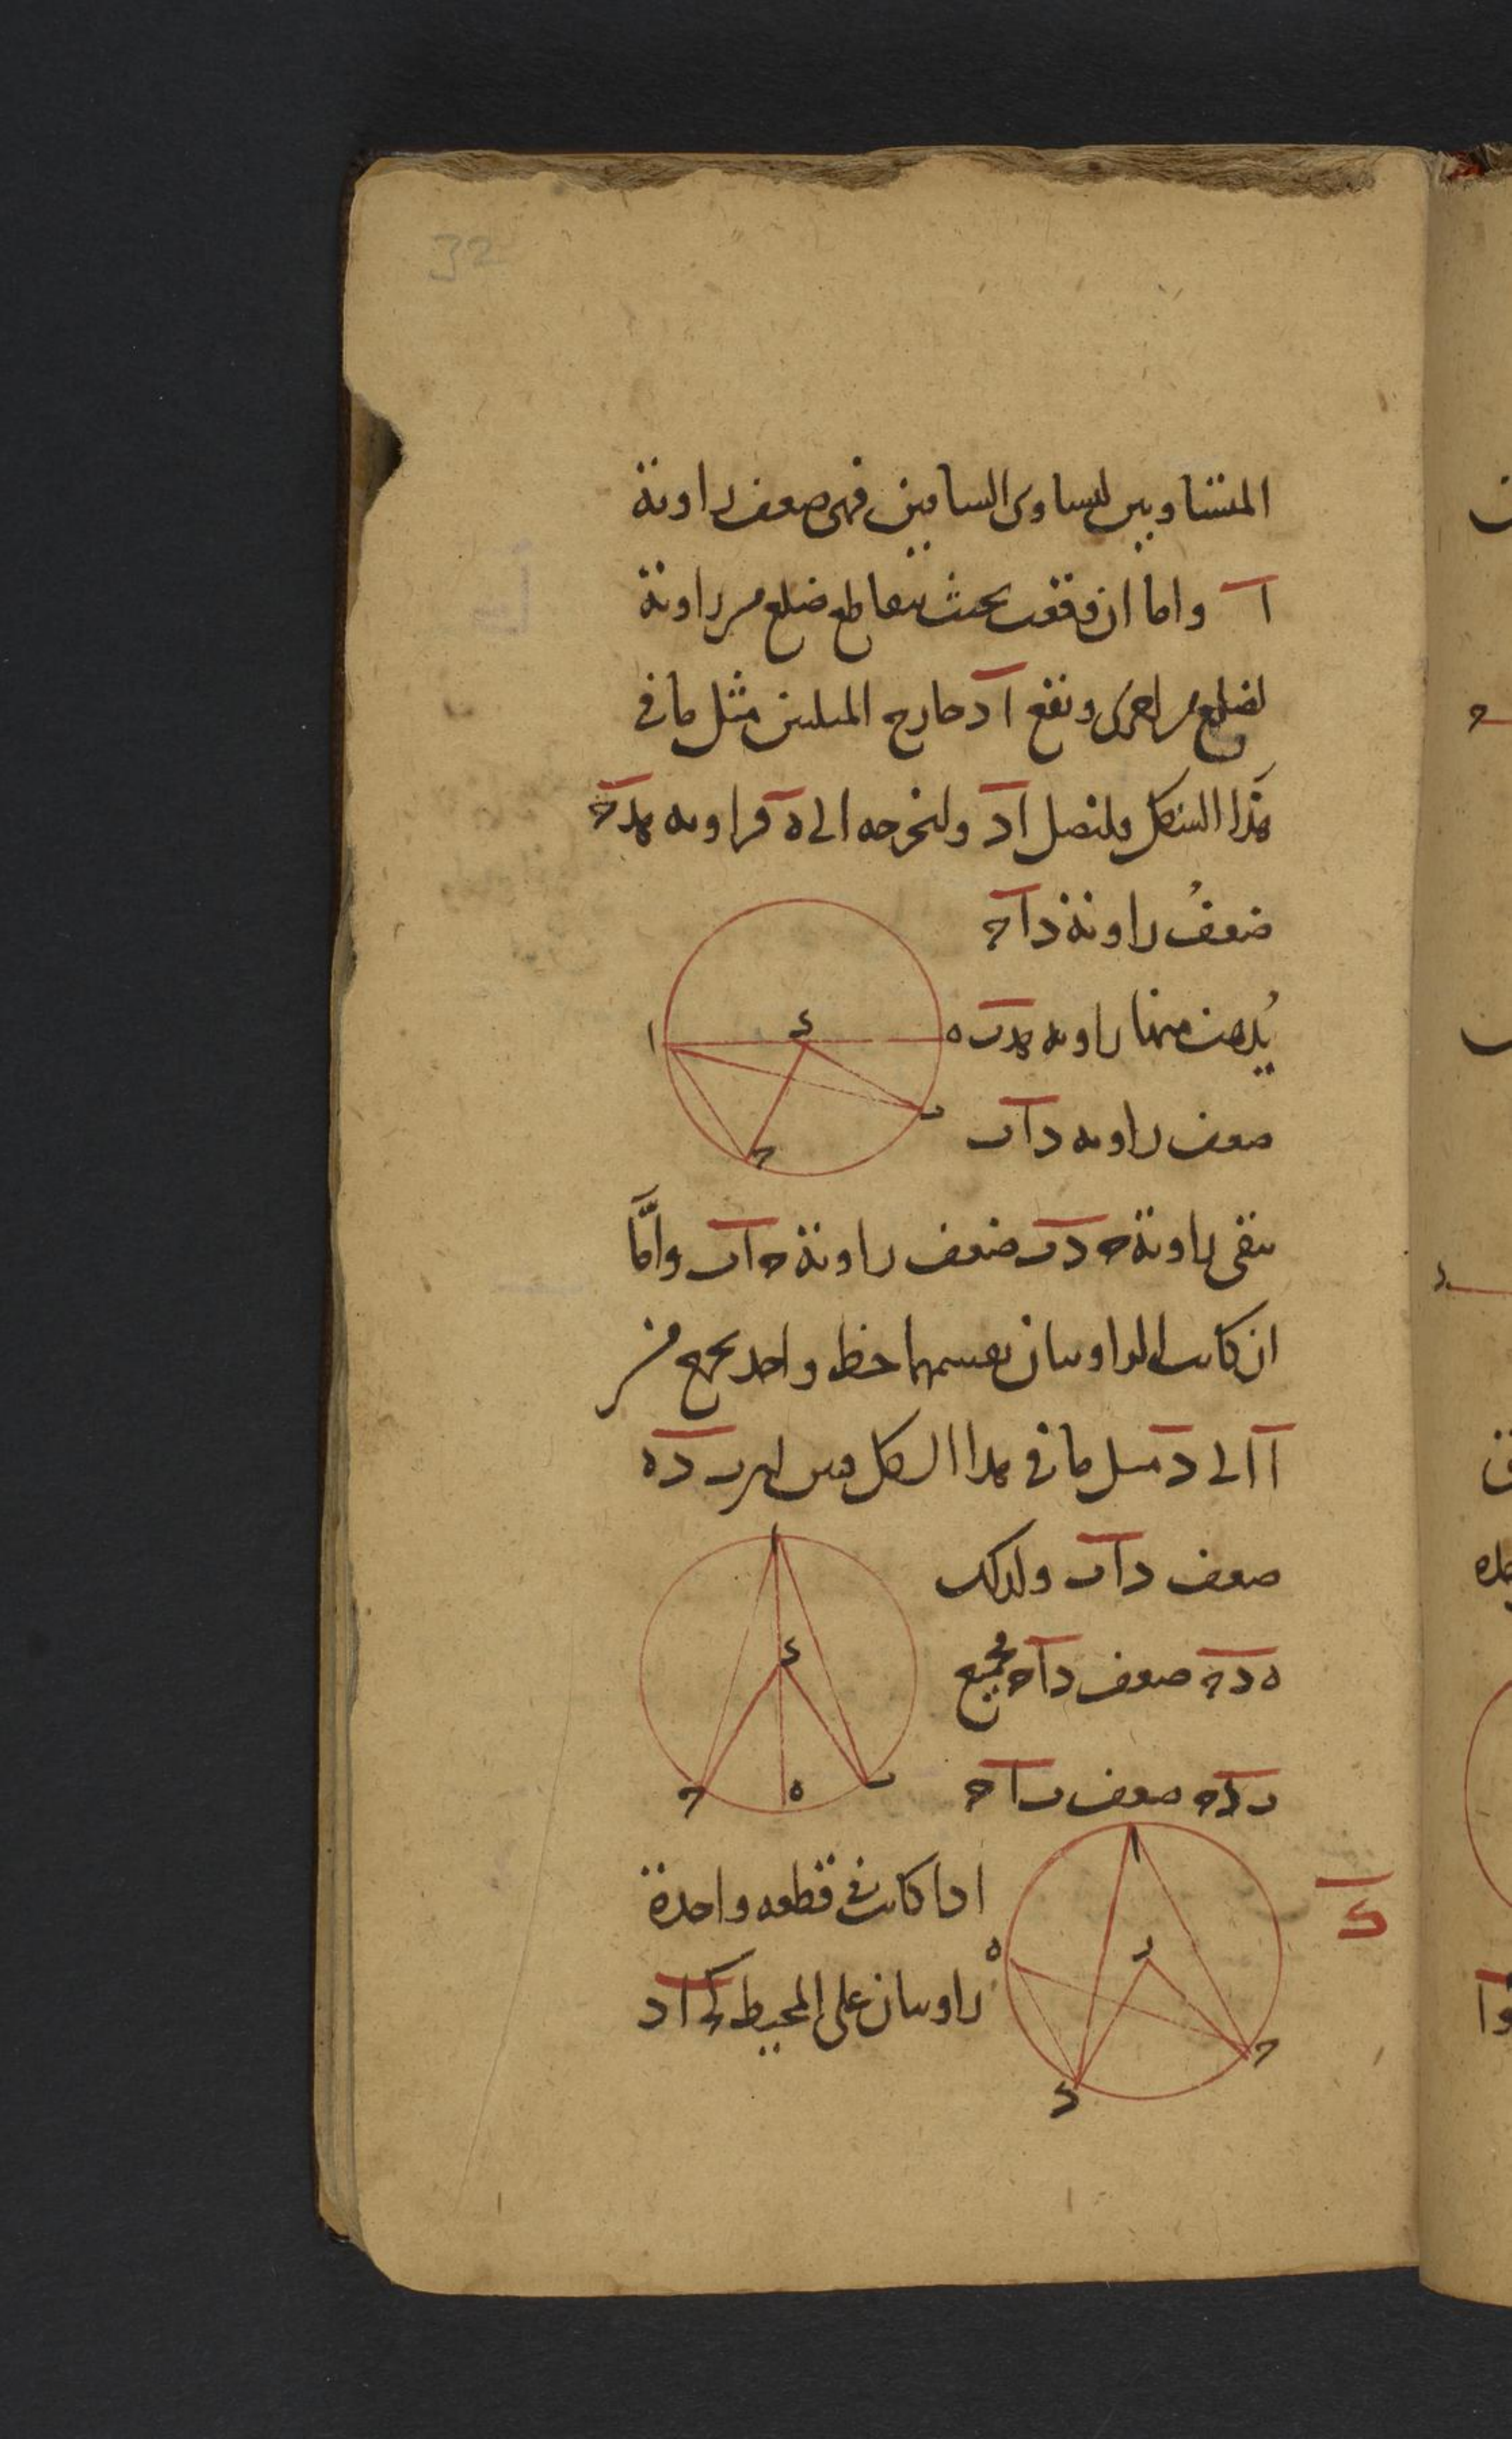 32
المتساويين لتساوى الساقين فهى ضعف زاوية
ا واما ان وقعت بحيث يتقاطع ضلع من زاوية
لضلع من اخرى ويقع اد خارج المثلثين مثل ما فى
هذا الشكل فلنصل اد ولنخرجه الى ه فزاويه هدح
ضعف زاوية داح
ا د ه ب ح
يذهب منها زاويه هدب
ضعف زاويه داب
يبقى زاوية حدب ضعف زاوية حاب واما
ان كانت الزاويتان يقسمهما خط واحد يخرج من
ا الى د مثل ما فى هذا الشكل ب ده
ا د ح ه ب
ضعف داب ولذلك
ه دح ضعف داح فجميع
ب دح ضعف باح
ك
ا ه ح
اذا كانت فى قطعه واحدة
زاويتان على المحيط ك اد